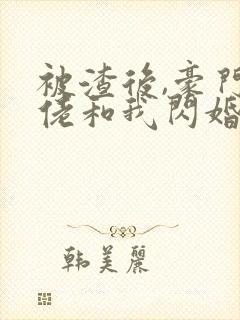 被渣後,豪門
佬和我閃婚
韩美麗